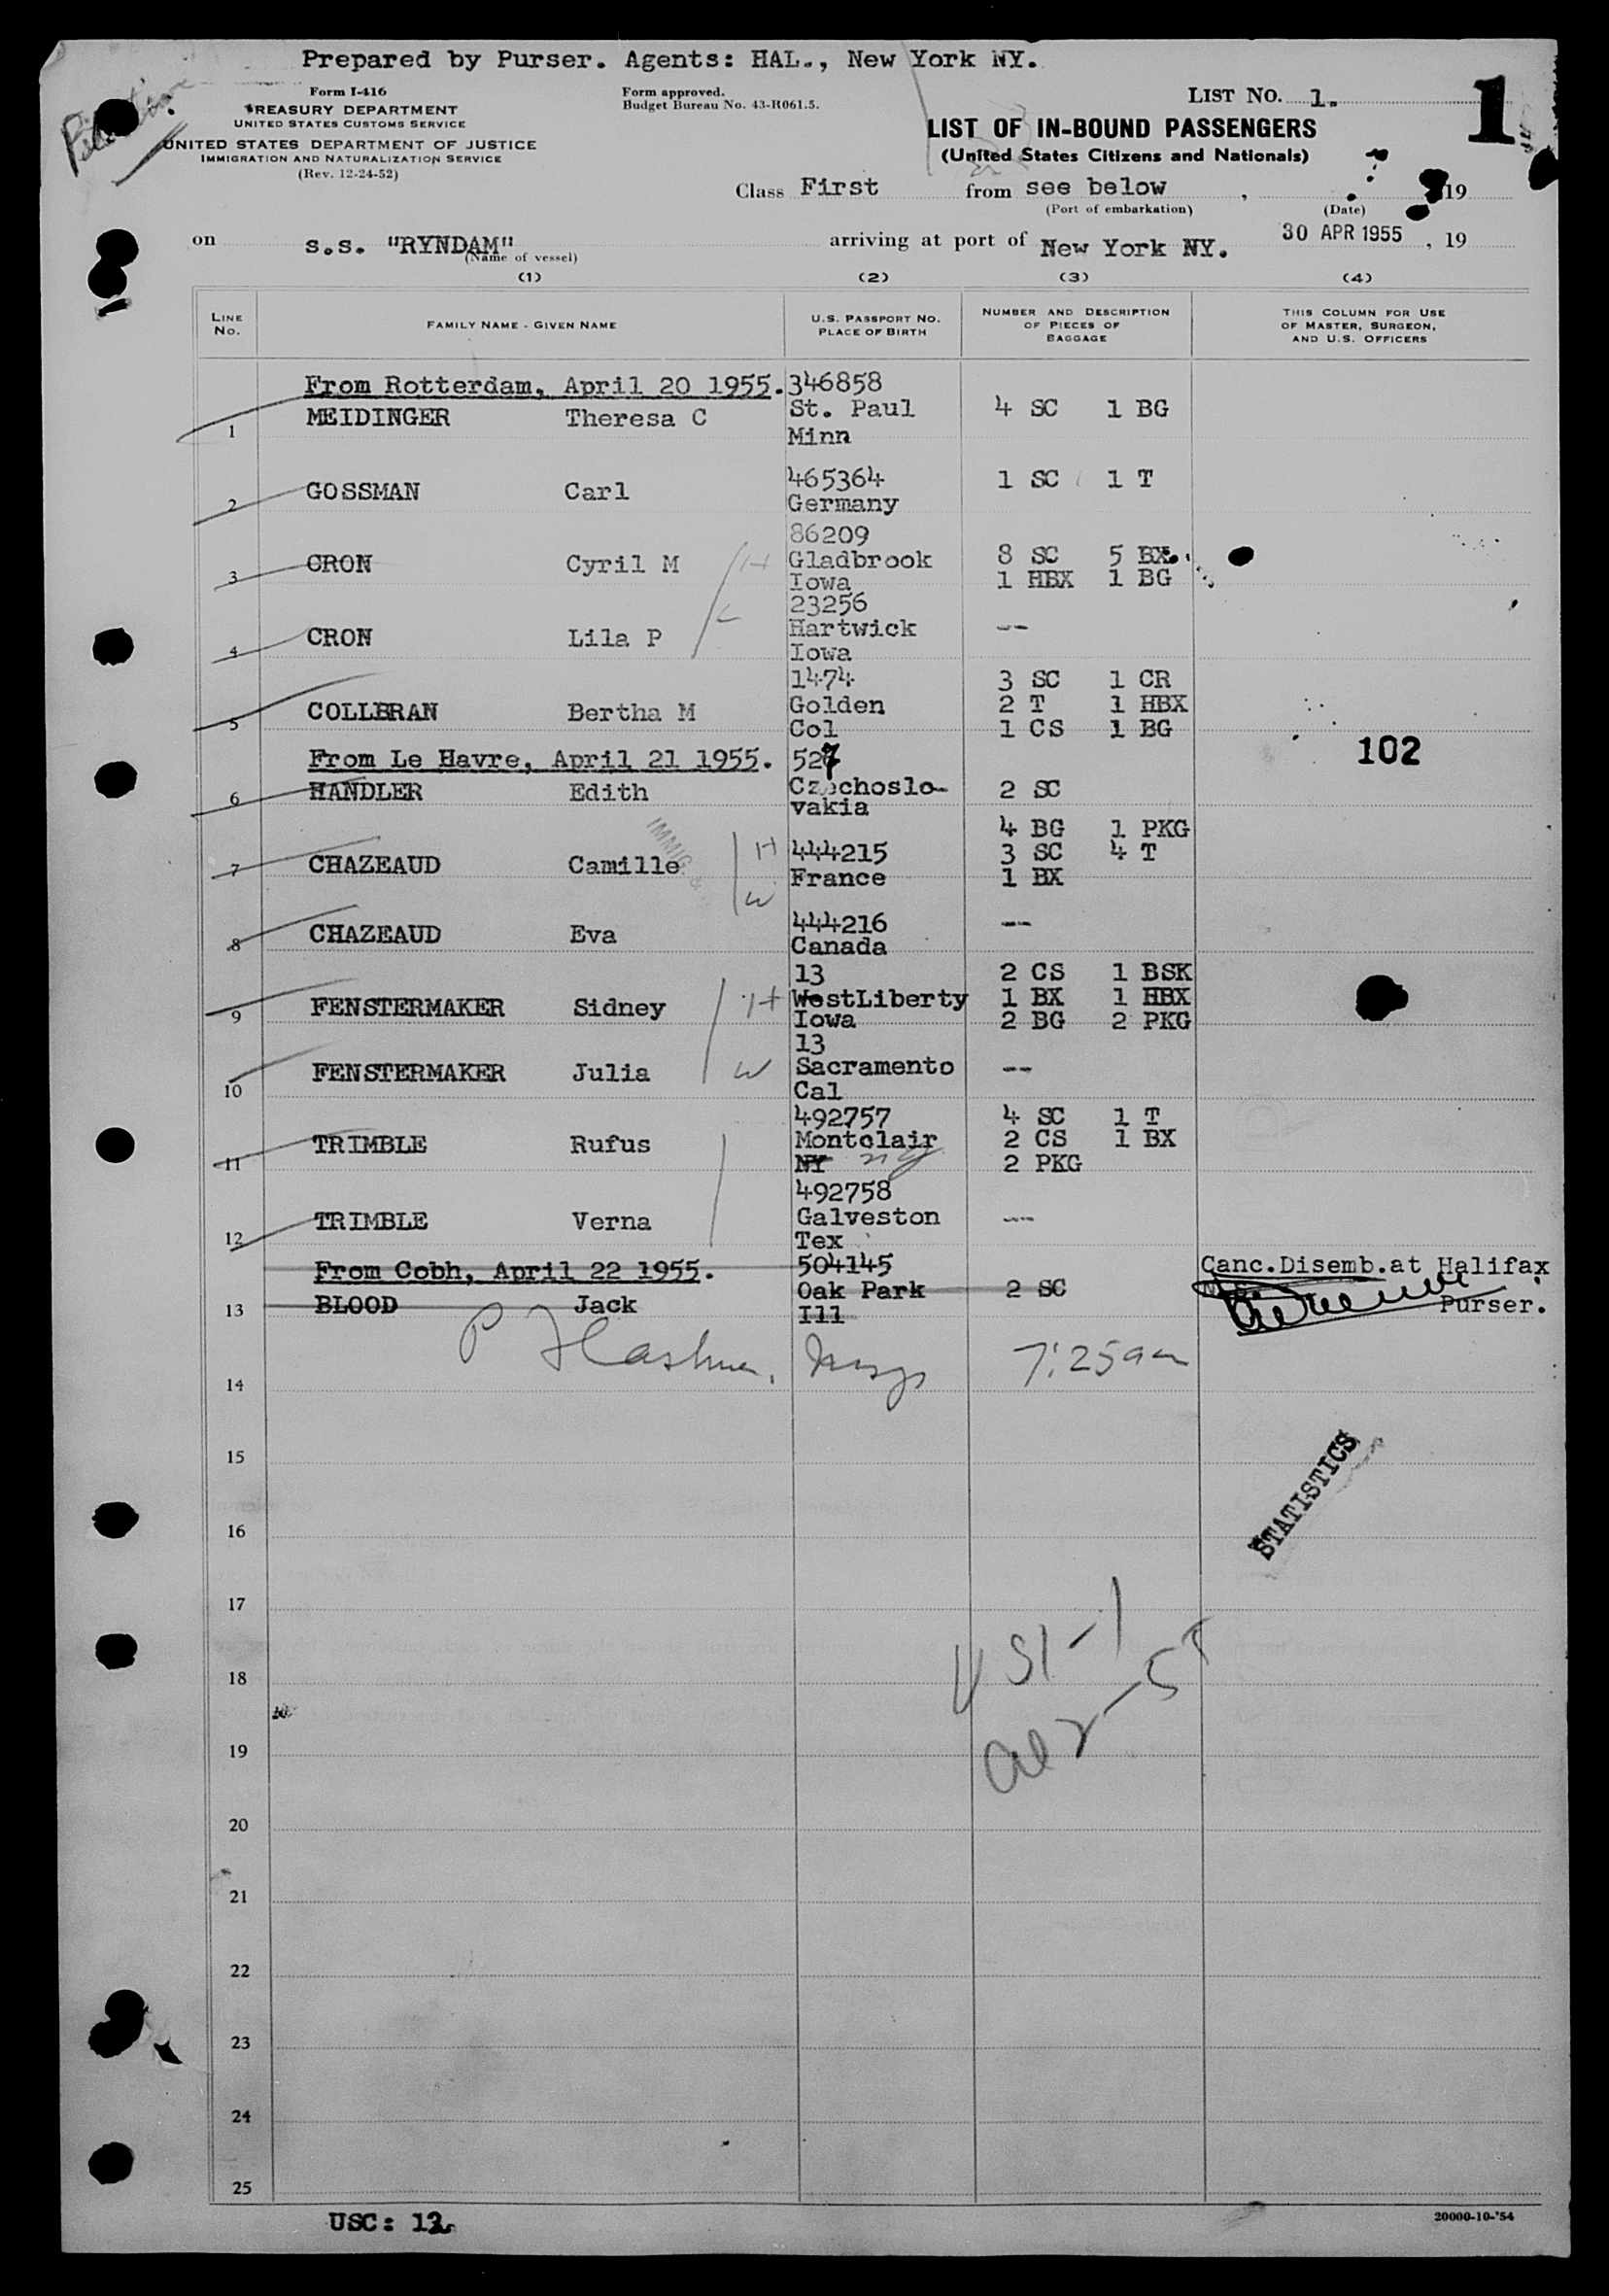 Prepared by Purser. Agents: HAL., New York NY.
Form I-416
TREASURY DEPARTMENT
UNITED STATES CUSTOMS SERVICE
UNITED STATES DEPARTMENT OF JUSTICE
IMMIGRATION AND NATURALIZATION SERVICE
(Rev. 12-24-52)
Form approved.
Budget Bureau No. 43-R061.5.
LIST NO. 1.
1
LIST OF IN-BOUND PASSENGERS
(United States Citizens and Nationals)
Class First from see below , 19
(Port of embarkation) (Date)
on s.s. "RYNDAM" arriving at port of New York NY. 30 APR 1955 , 19
(Name of vessel)
(1) (2) (3) (4)
LINE NO. FAMILY NAME - GIVEN NAME U.S. PASSPORT NO. PLACE OF BIRTH NUMBER AND DESCRIPTION OF PIECES OF BAGGAGE THIS COLUMN FOR USE OF MASTER, SURGEON, AND U.S. OFFICERS
From Rotterdam, April 20 1955. 346858
1 MEIDINGER Theresa C St. Paul 4 SC 1 BG
Minn
465364 1 SC 1 T
2 GOSSMAN Carl Germany
86209
3 CRON Cyril M H Gladbrook 8 SC 5 BX
Iowa 1 HBX 1 BG
23256
4 CRON Lila P Hartwick --
Iowa
1474 3 SC 1 CR
5 COLLBRAN Bertha M Golden 2 T 1 HBX
Col 1 CS 1 BG
From Le Havre, April 21 1955. 527
102
6 HANDLER Edith Czechoslo- 2 SC
vakia
4 BG 1 PKG
7 CHAZEAUD Camille H 444215 3 SC 4 T
W France 1 BX
444216 --
8 CHAZEAUD Eva Canada
13 2 CS 1 BSK
9 FENSTERMAKER Sidney H WestLiberty 1 BX 1 HBX
Iowa 2 BG 2 PKG
13
10 FENSTERMAKER Julia W Sacramento --
Cal
492757 4 SC 1 T
11 TRIMBLE Rufus Montclair 2 CS 1 BX
NY NJ 2 PKG
492758
12 TRIMBLE Verna Galveston --
Tex
From Cobh, April 22 1955. 504145 Canc.Disemb.at Halifax
13 BLOOD Jack Oak Park 2 SC
Ill Purser.
7:25am
14
15
STATISTICS
16
17
18
19
20
21
22
23
24
25
USC: 12
20000-10-'54